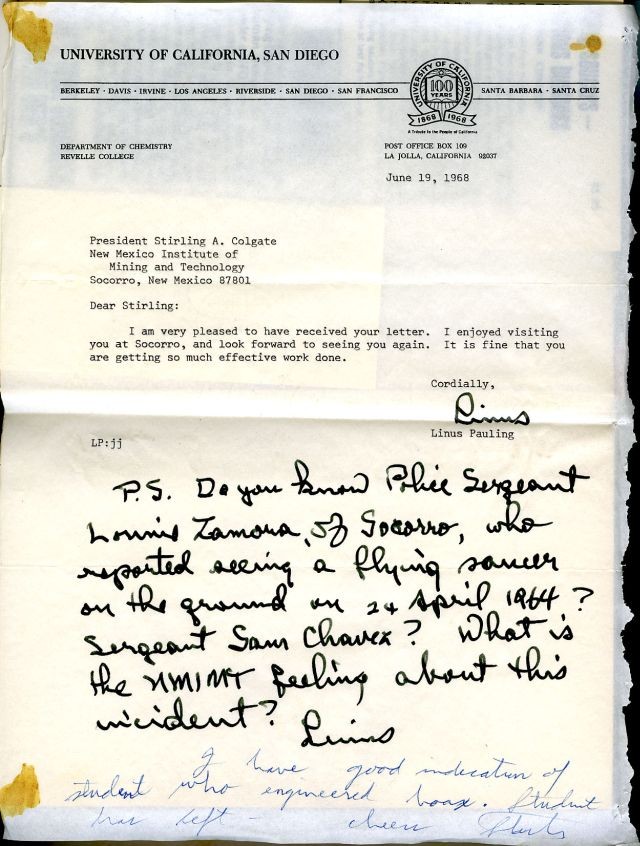 UNIVERSITY OF CALIFORNIA, SAN DIEGO
BERKELEY · DAVIS · IRVINE · LOS ANGELES · RIVERSIDE · SAN DIEGO · SAN FRANCISCO
SANTA BARBARA · SANTA CRUZ
UNIVERSITY OF CALIFORNIA
100
YEARS
1868 1968
A Tribute to the People of California
DEPARTMENT OF CHEMISTRY
REVELLE COLLEGE
POST OFFICE BOX 109
LA JOLLA, CALIFORNIA 92037
June 19, 1968
President Stirling A. Colgate
New Mexico Institute of
Mining and Technology
Socorro, New Mexico 87801
Dear Stirling:
I am very pleased to have received your letter. I enjoyed visiting
you at Socorro, and look forward to seeing you again. It is fine that you
are getting so much effective work done.
Cordially,
Linus
Linus Pauling
LP:jj
P.S. Do you know Police Sergeant
Lonnie Zamora, of Socorro, who
reported seeing a flying saucer
on the ground on 24 April 1964?
Sergeant Sam Chavez? What is
the NMIMT feeling about this
incident? Linus
I have good indication of
student who engineered hoax. Student
has left -